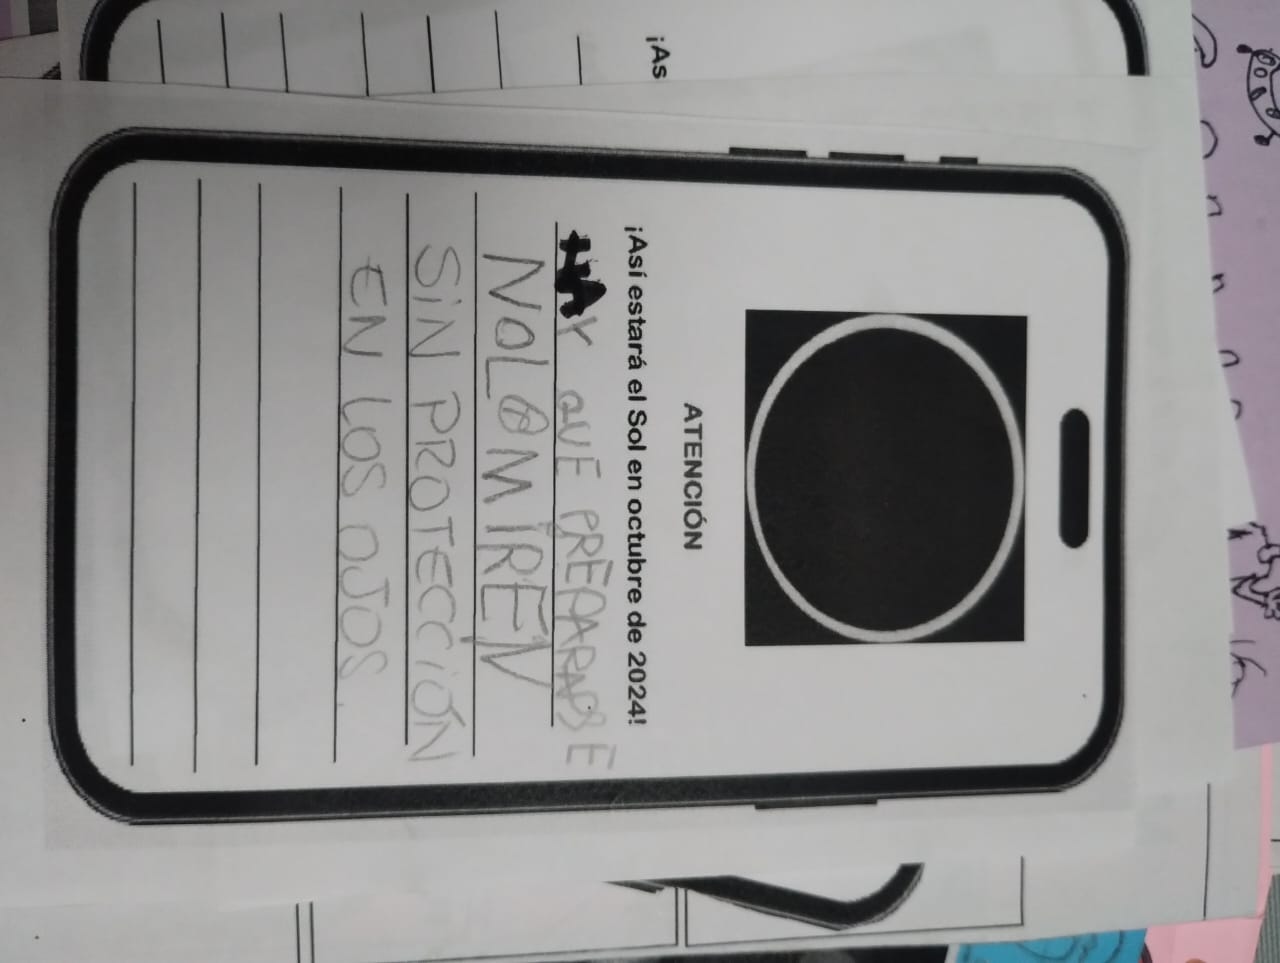 ¡As
ATENCIÓN
¡Así estará el Sol en octubre de 2024!
HAY QUE PREPARARSE
NO LO MIREN
SiN PROTECCiÓN
EN LOS OJOS.